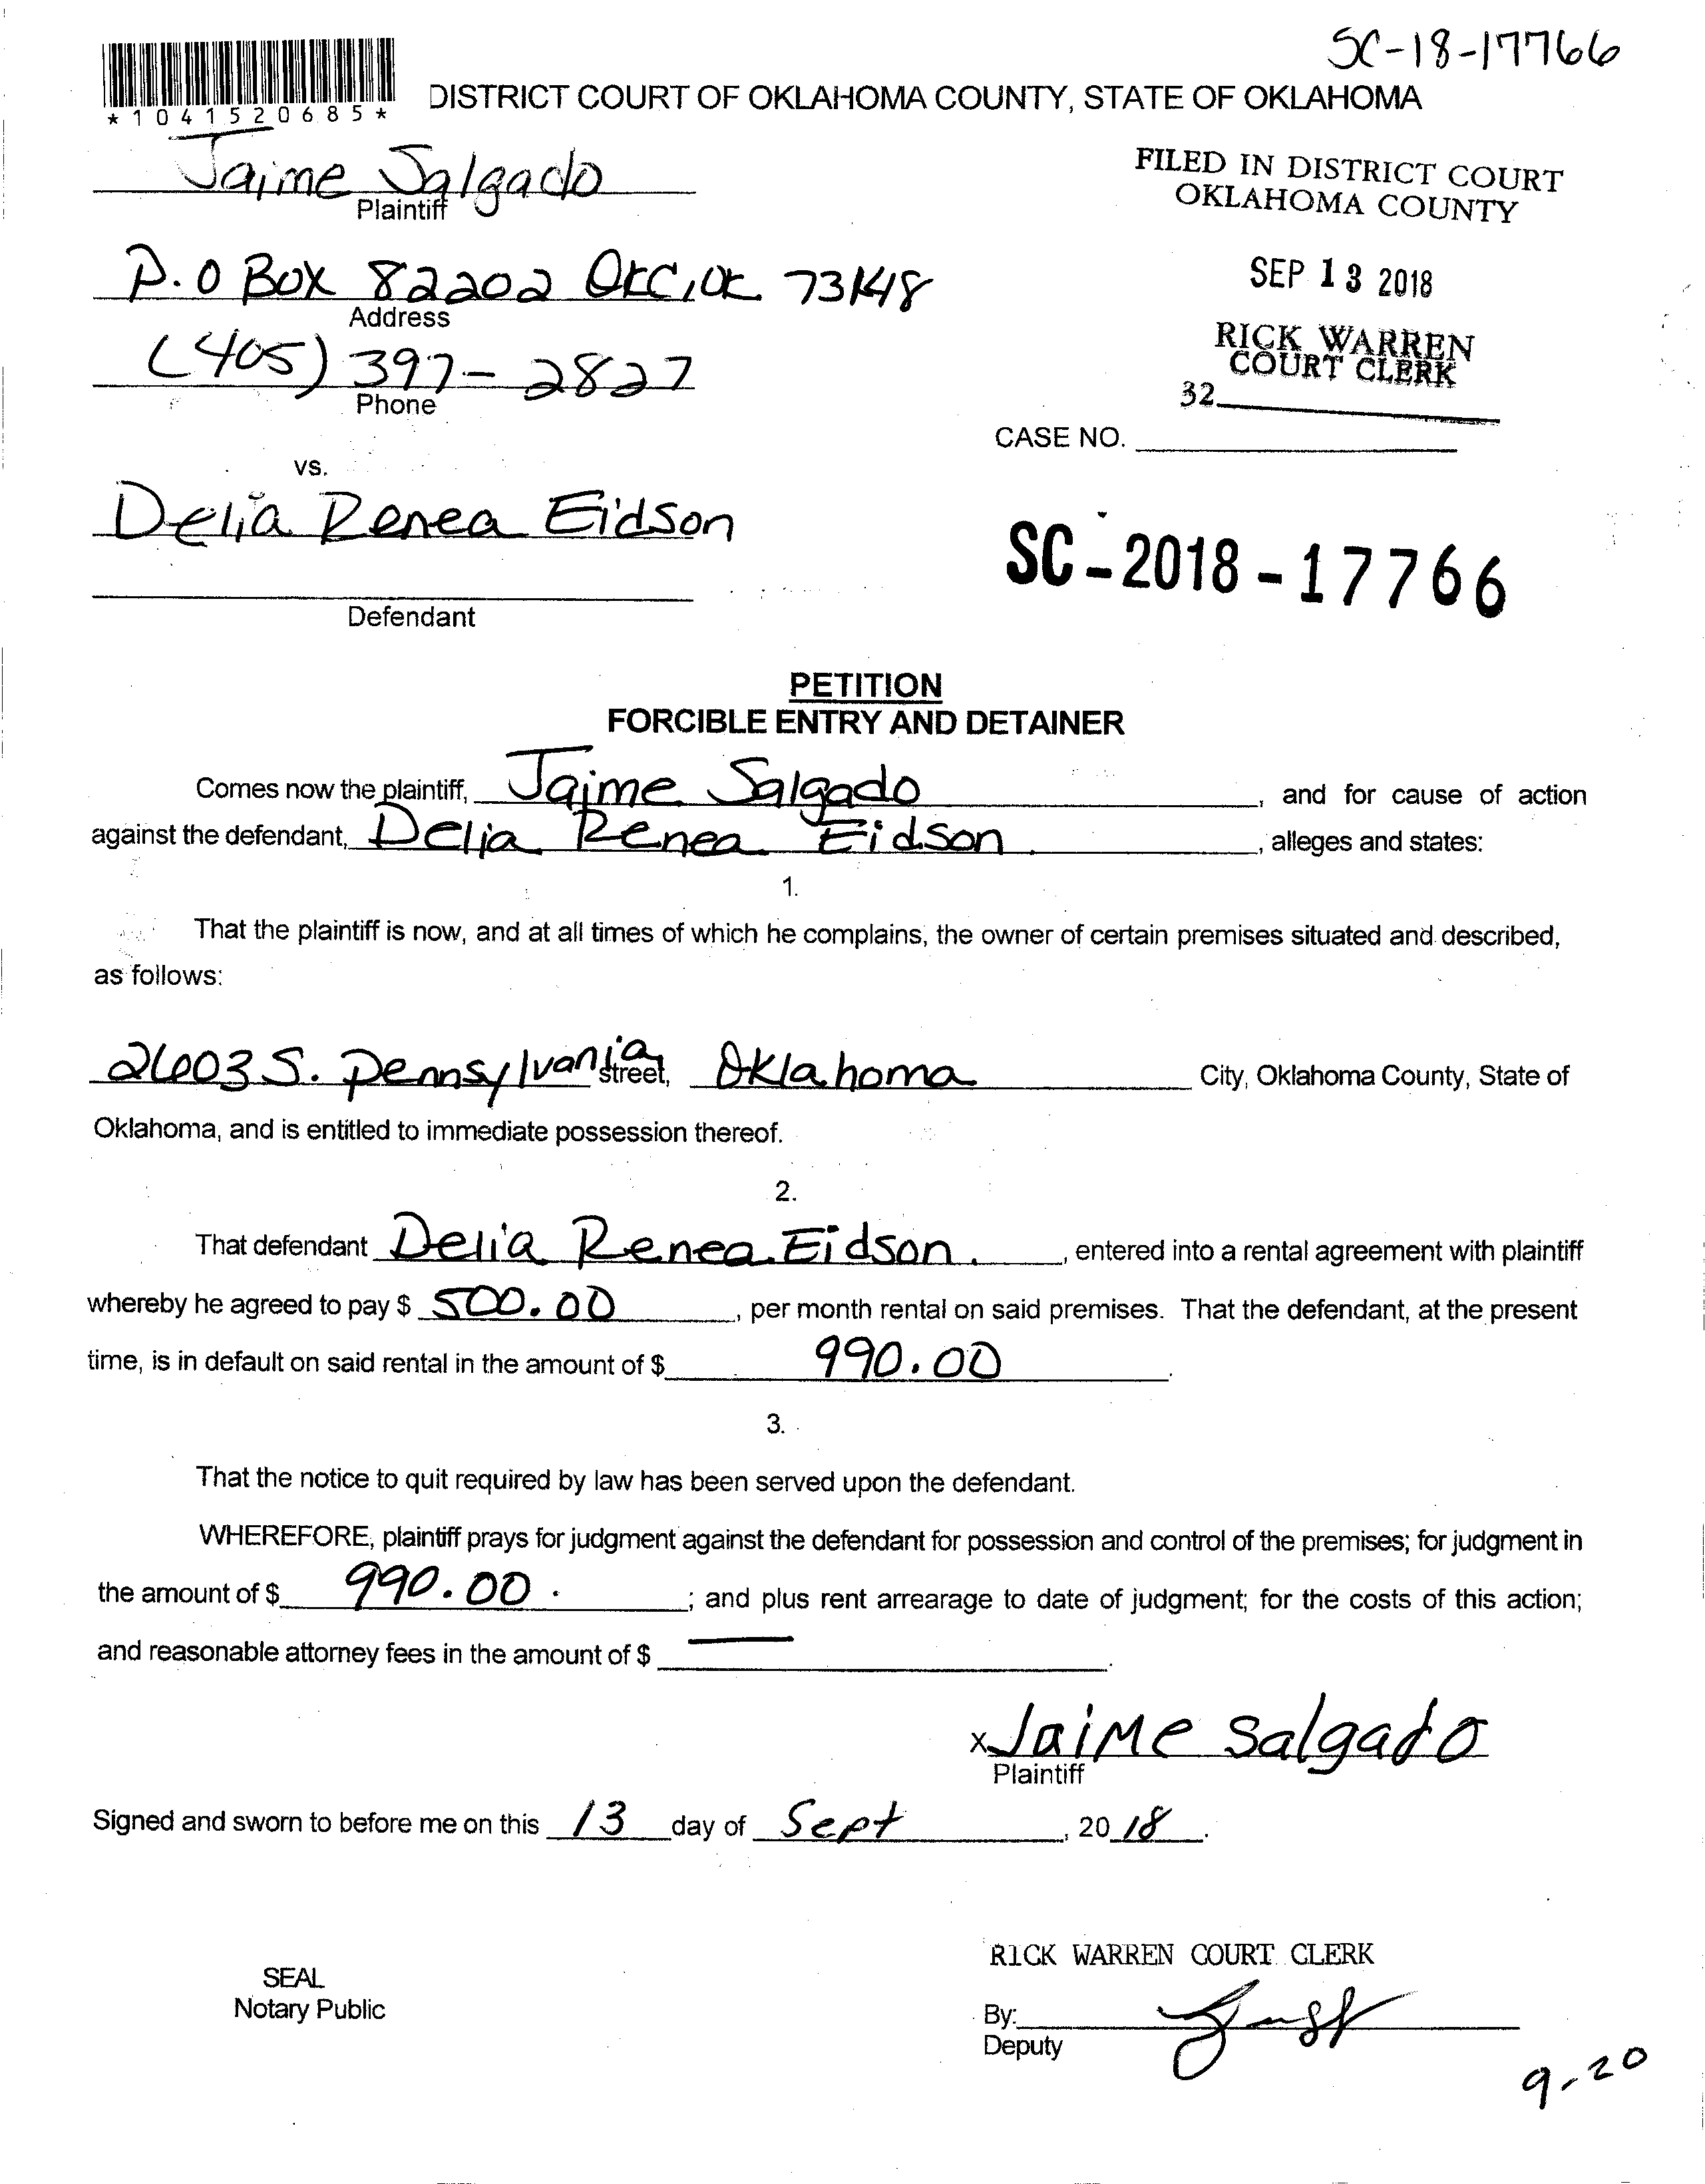 SC-18-17766
*1041520685*
DISTRICT COURT OF OKLAHOMA COUNTY, STATE OF OKLAHOMA
Jaime Salgado
Plaintiff
FILED IN DISTRICT COURT
OKLAHOMA COUNTY
P.O Box 82202 OKC, OK 73148
Address
SEP 13 2018
(405) 397-2827
Phone
RICK WARREN
COURT CLERK
32
CASE NO.
vs.
Delia Renea Eidson
Defendant
SC-2018-17766
PETITION
FORCIBLE ENTRY AND DETAINER
Comes now the plaintiff, Jaime Salgado, and for cause of action
against the defendant, Delia Renea Eidson, alleges and states:
1.
That the plaintiff is now, and at all times of which he complains, the owner of certain premises situated and described,
as follows:
2603 S. Pennsylvania street, Oklahoma City, Oklahoma County, State of
Oklahoma, and is entitled to immediate possession thereof.
2.
That defendant Delia Renea Eidson, entered into a rental agreement with plaintiff
whereby he agreed to pay $ 500.00, per month rental on said premises. That the defendant, at the present
time, is in default on said rental in the amount of $ 990.00.
3.
That the notice to quit required by law has been served upon the defendant.
WHEREFORE, plaintiff prays for judgment against the defendant for possession and control of the premises; for judgment in
the amount of $ 990.00; and plus rent arrearage to date of judgment; for the costs of this action;
and reasonable attorney fees in the amount of $ —.
x Jaime Salgado
Plaintiff
Signed and sworn to before me on this 13 day of Sept, 2018.
RICK WARREN COURT CLERK
SEAL
Notary Public
By:
Deputy
9-20